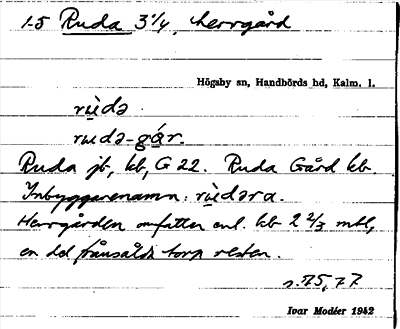 1-5 Ruda 3 1/4, herrgård
Högsby sn, Handbörds hd, Kalm. l.
rùdə.
rudə-gár.
Ruda jb, kb, G 22. Ruda Gård kb.
Inbyggarenamn: rùdəra.
Herrgården omfattar enl. kb 2 2/3 mtl,
en del frånsålda torp resten.
s. 75, 77
Ivar Modéer 1942